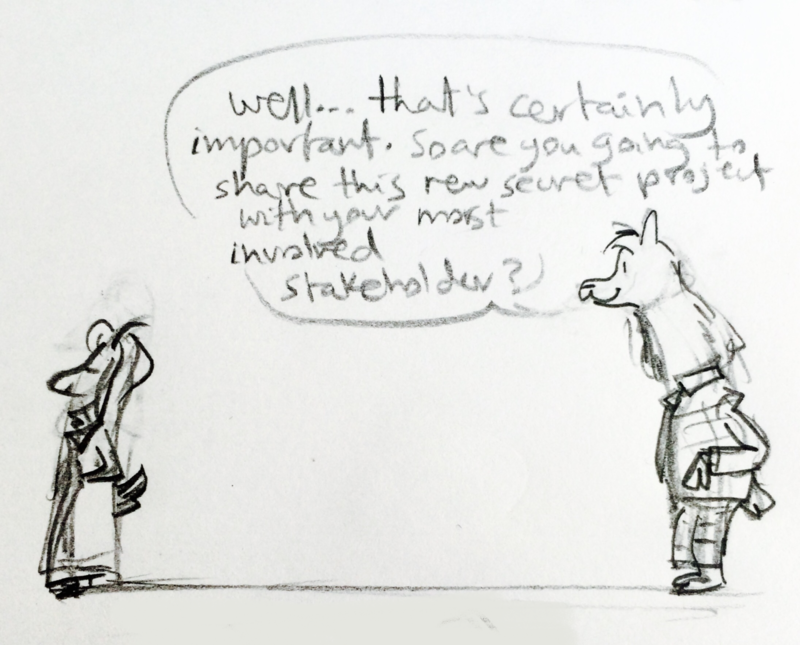 well... that's certainly
important. So are you going to
share this new secret project
with your most
involved
stakeholder?